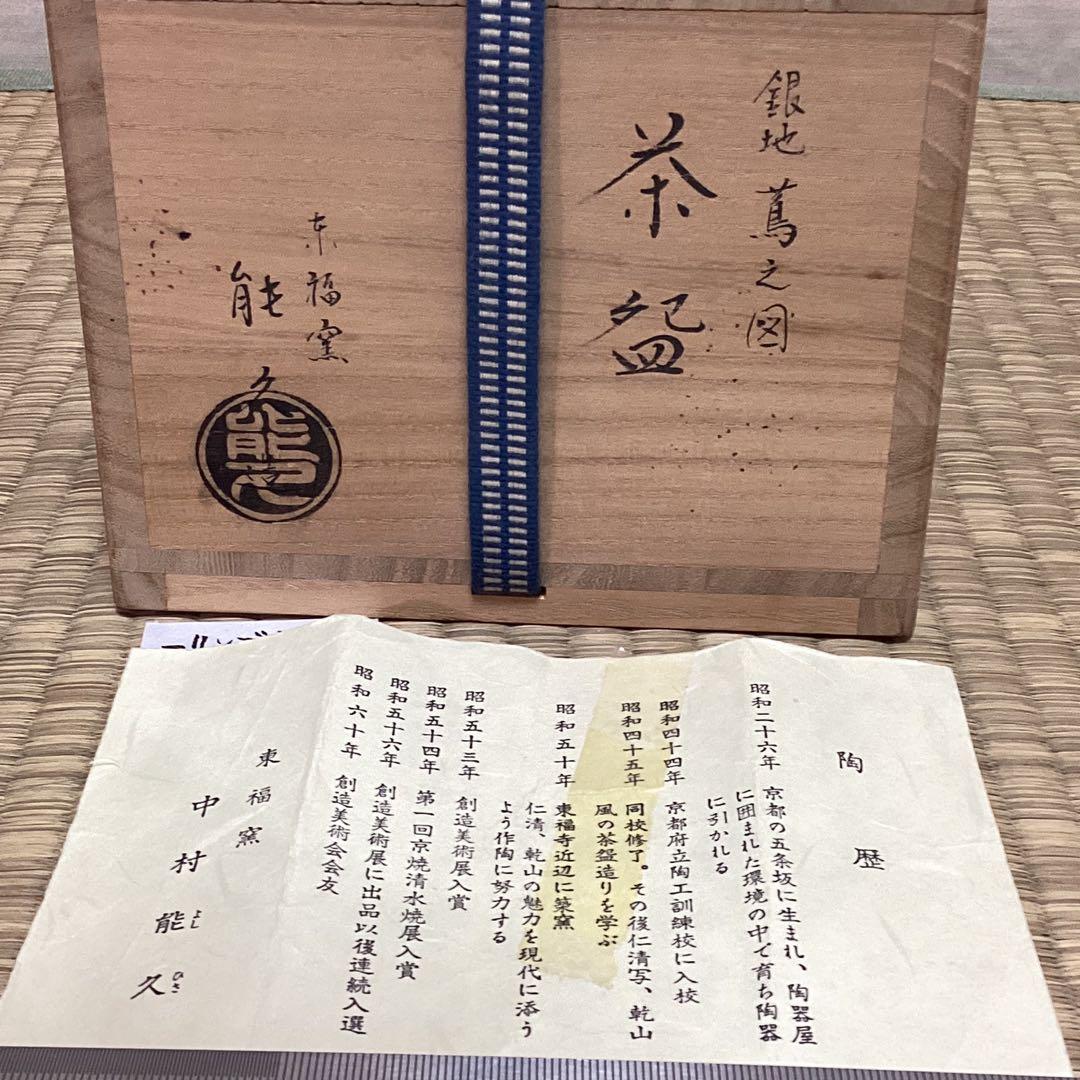 銀地 蔦之図
茶盌
東福窯
能久
陶歴
昭和二十六年 京都の五条坂に生まれ、陶器屋
に囲まれた環境の中で育ち陶器
に引かれる
昭和四十四年 京都府立陶工訓練校に入校
昭和四十五年 同校修了。その後仁清写、乾山
風の茶盌造りを学ぶ
昭和五十年 東福寺近辺に築窯
仁清、乾山の魅力を現代に添う
よう作陶に努力する
昭和五十三年 創造美術展入賞
昭和五十四年 第一回京焼清水焼展入賞
昭和五十六年 創造美術展に出品以後連続入選
昭和六十年 創造美術会会友
東福窯
中村能久
よし ひさ